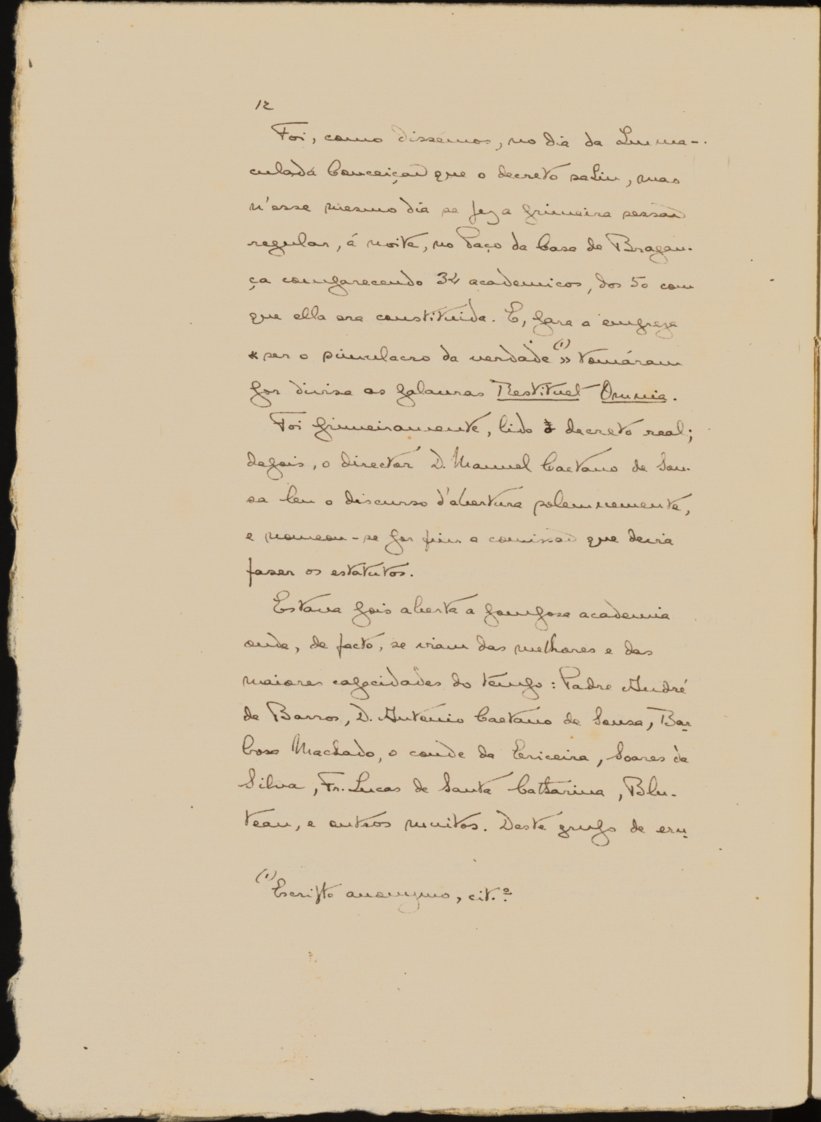 12
Foi, como dissémos, no dia da Imma-
culada Conceição que o decreto sahiu, mas
n'esse mesmo dia se fez a primeira sessão
regular, á noite, no Paço da Casa de Bragan-
ça comparecendo 34 academicos, dos 50 com
que ella era constituida. E, para a empreza
« ser o simulacro da verdade (1) » tomáram
por divisa as palavras Restituet Omnia.
Foi primeiramente, lido o decreto real;
depois, o director D. Manuel Caetano de Sou-
sa leu o discurso d'abertura solemnemente,
e nomeou-se por fim a comissão que devia
fazer os estatutos.
Estava pois aberta a pomposa academia
onde, de facto, se viam das melhores e das
maiores capacidades do tempo: Padre André
de Barros, D. Antonio Caetano de Sousa, Bar-
bosa Machado, o conde da Ericeira, Soares da
Silva, Fr. Lucas de Santa Catharina, Blu-
teau, e outros muitos. Deste grupo de eru-
(1) Escripto anonymo, cit.º